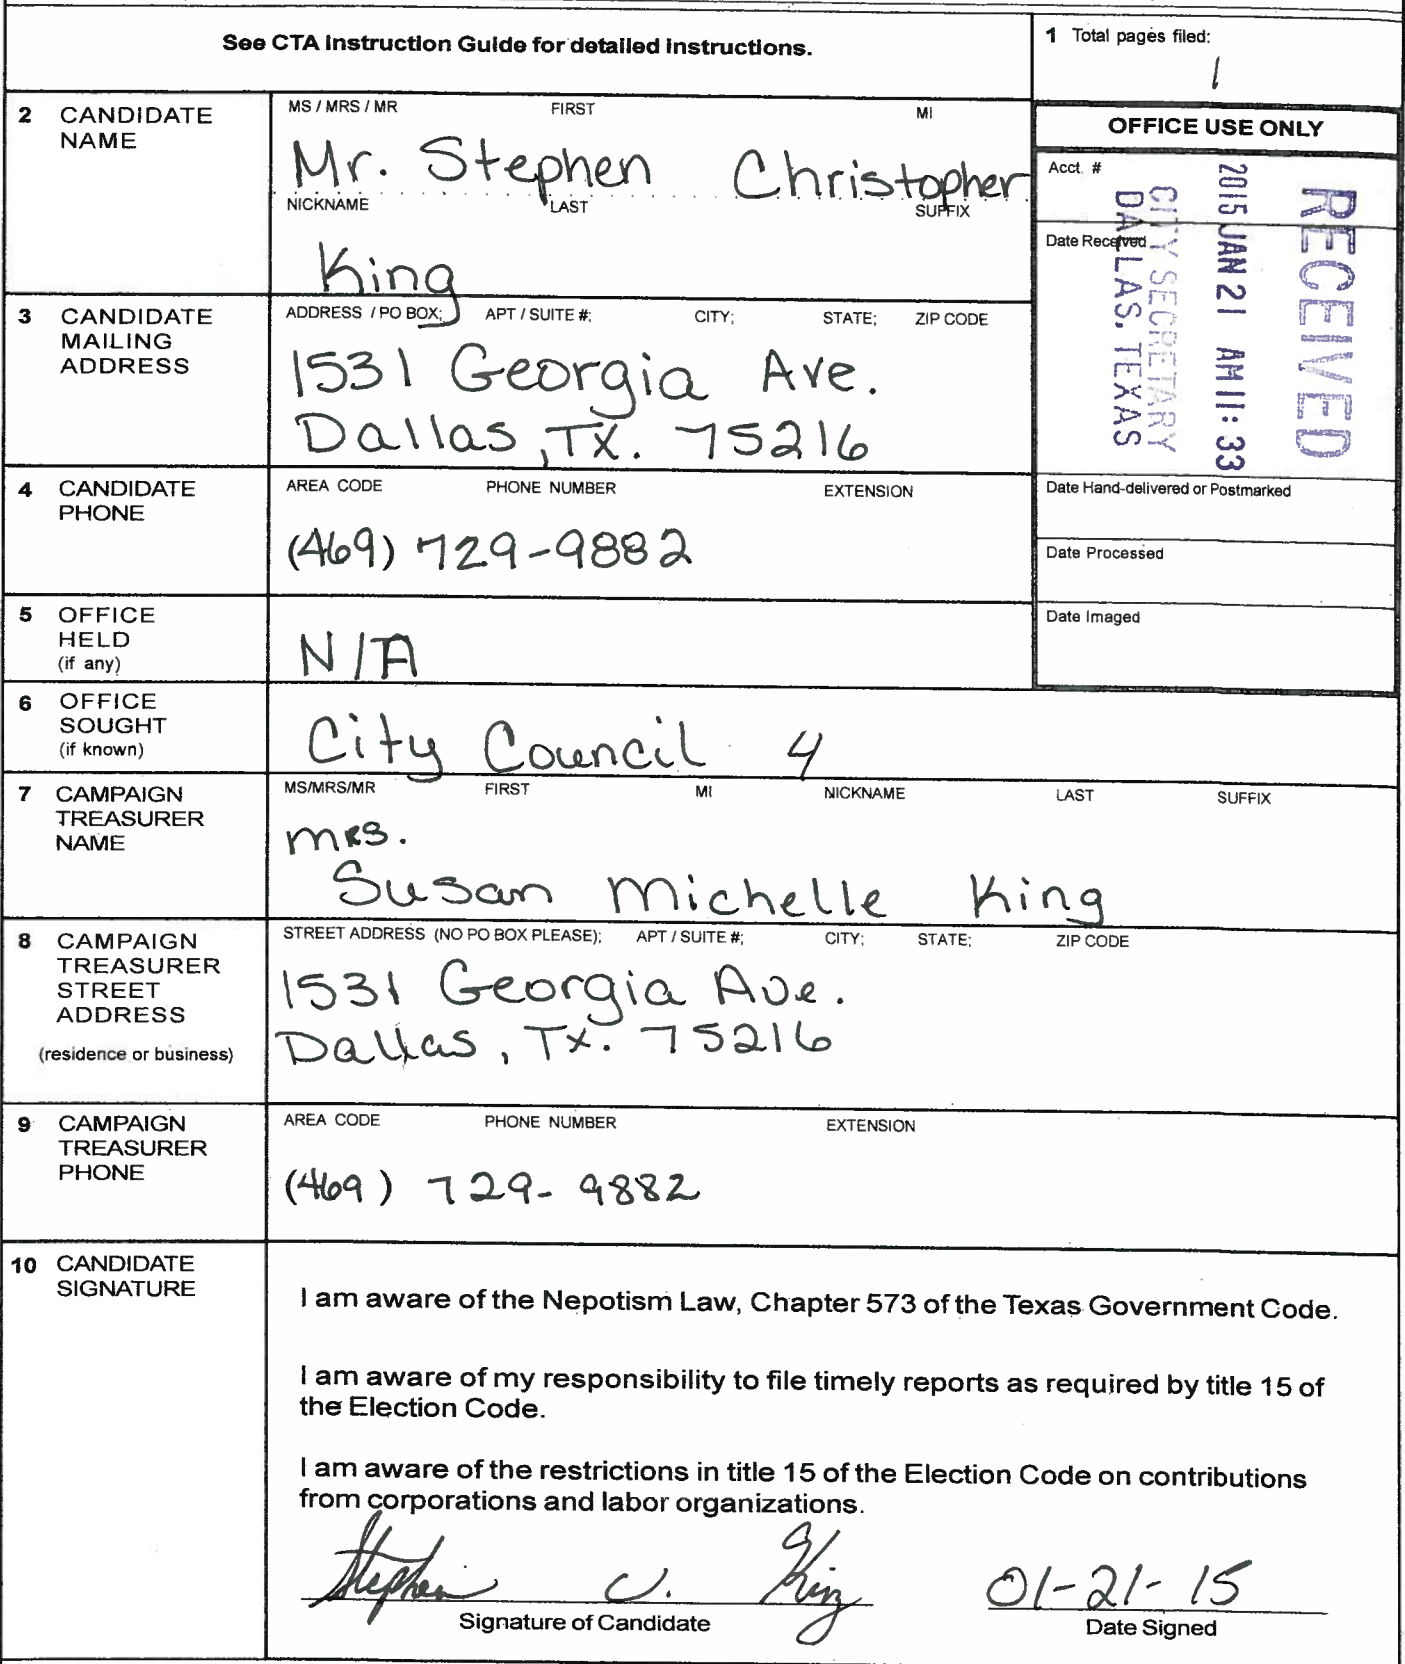 See CTA Instruction Guide for detailed instructions.
1 Total pages filed:
1
2 CANDIDATE NAME
MS / MRS / MR FIRST MI
Mr. Stephen Christopher
NICKNAME LAST SUFFIX
King
OFFICE USE ONLY
Acct. #
Date Received
RECEIVED
2015 JAN 21 AM 11: 33
CITY SECRETARY
DALLAS, TEXAS
Date Hand-delivered or Postmarked
Date Processed
Date Imaged
3 CANDIDATE MAILING ADDRESS
ADDRESS / PO BOX; APT / SUITE #; CITY; STATE; ZIP CODE
1531 Georgia Ave.
Dallas, TX. 75216
4 CANDIDATE PHONE
AREA CODE PHONE NUMBER EXTENSION
(469) 729-9882
5 OFFICE HELD (if any)
N/A
6 OFFICE SOUGHT (if known)
City Council 4
7 CAMPAIGN TREASURER NAME
MS/MRS/MR FIRST MI NICKNAME LAST SUFFIX
mrs.
Susan Michelle King
8 CAMPAIGN TREASURER STREET ADDRESS
(residence or business)
STREET ADDRESS (NO PO BOX PLEASE); APT / SUITE #; CITY; STATE; ZIP CODE
1531 Georgia Ave.
Dallas, Tx. 75216
9 CAMPAIGN TREASURER PHONE
AREA CODE PHONE NUMBER EXTENSION
(469) 729-9882
10 CANDIDATE SIGNATURE
I am aware of the Nepotism Law, Chapter 573 of the Texas Government Code.
I am aware of my responsibility to file timely reports as required by title 15 of
the Election Code.
I am aware of the restrictions in title 15 of the Election Code on contributions
from corporations and labor organizations.
Stephen C. King 01-21-15
Signature of Candidate Date Signed